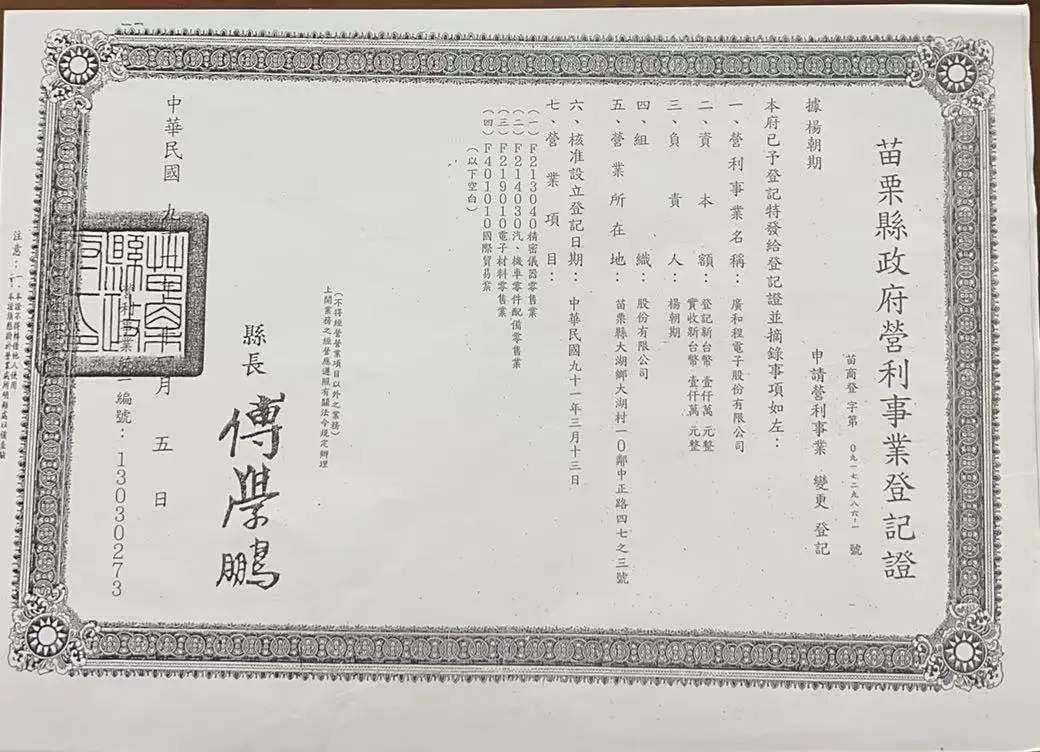 苗栗縣政府營利事業登記證
苗商登 字第 0九一七二九八六-一 號
據楊朝期 申請營利事業 變更 登記
本府已予登記特發給登記證並摘錄事項如左：
一、營利事業名稱：廣和程電子股份有限公司
二、資本額：登記新台幣 壹仟萬 元整
實收新台幣 壹仟萬 元整
三、負責人：楊朝期
四、組織：股份有限公司
五、營業所在地：苗栗縣大湖鄉大湖村一0鄰中正路四七之三號
六、核准設立登記日期：中華民國九十一年三月十三日
七、營業項目：
(一)F213040精密儀器零售業
(二)F214030汽、機車零件配備零售業
(三)F219010電子材料零售業
(四)F401010國際貿易業
(以下空白)
(不得經營營業項目以外之業務)
上開業務之經營應遵照有關法令規定辦理
縣長 傅學鵬
中華民國 九 月 五 日
營利事業統一編號：13030273
注意：一、本證不得轉借他人使用
本證須懸掛於營業處所明顯處以備查驗